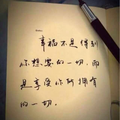 幸福不是得到
你想要的一切,而
是享受你所拥有
的一切.